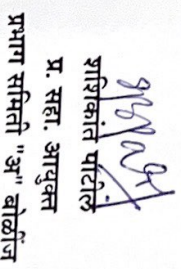 शशिकांत पाटील
प्र. सहा. आयुक्त
प्रभाग समिती "अ" बोळींज